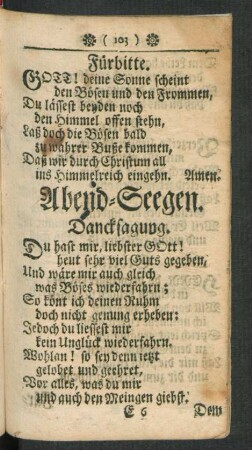 ( 103 )
Fürbitte.
GOTT! deine Sonne scheint
den Bösen und den Frommen,
Du lässest beyden noch
den Himmel offen stehn,
Laß doch die Bösen bald
zu wahrer Busse kommen,
Daß wir durch Christum all
ins Himmelreich eingehn. Amen.
Abend-Seegen.
Dancksagung.
Du hast mir, liebster GOtt!
heut sehr viel Guts gegeben,
Und wäre mir auch gleich
was Böses wiederfahrn;
So könt ich deinen Ruhm
doch nicht genung erheben:
Jedoch du liessest mir
kein Unglück wiederfahrn.
Wohlan! so sey denn jetzt
gelobet und geehret,
Vor alles, was du mir
und auch den Meingen giebst.
E 6 Dem